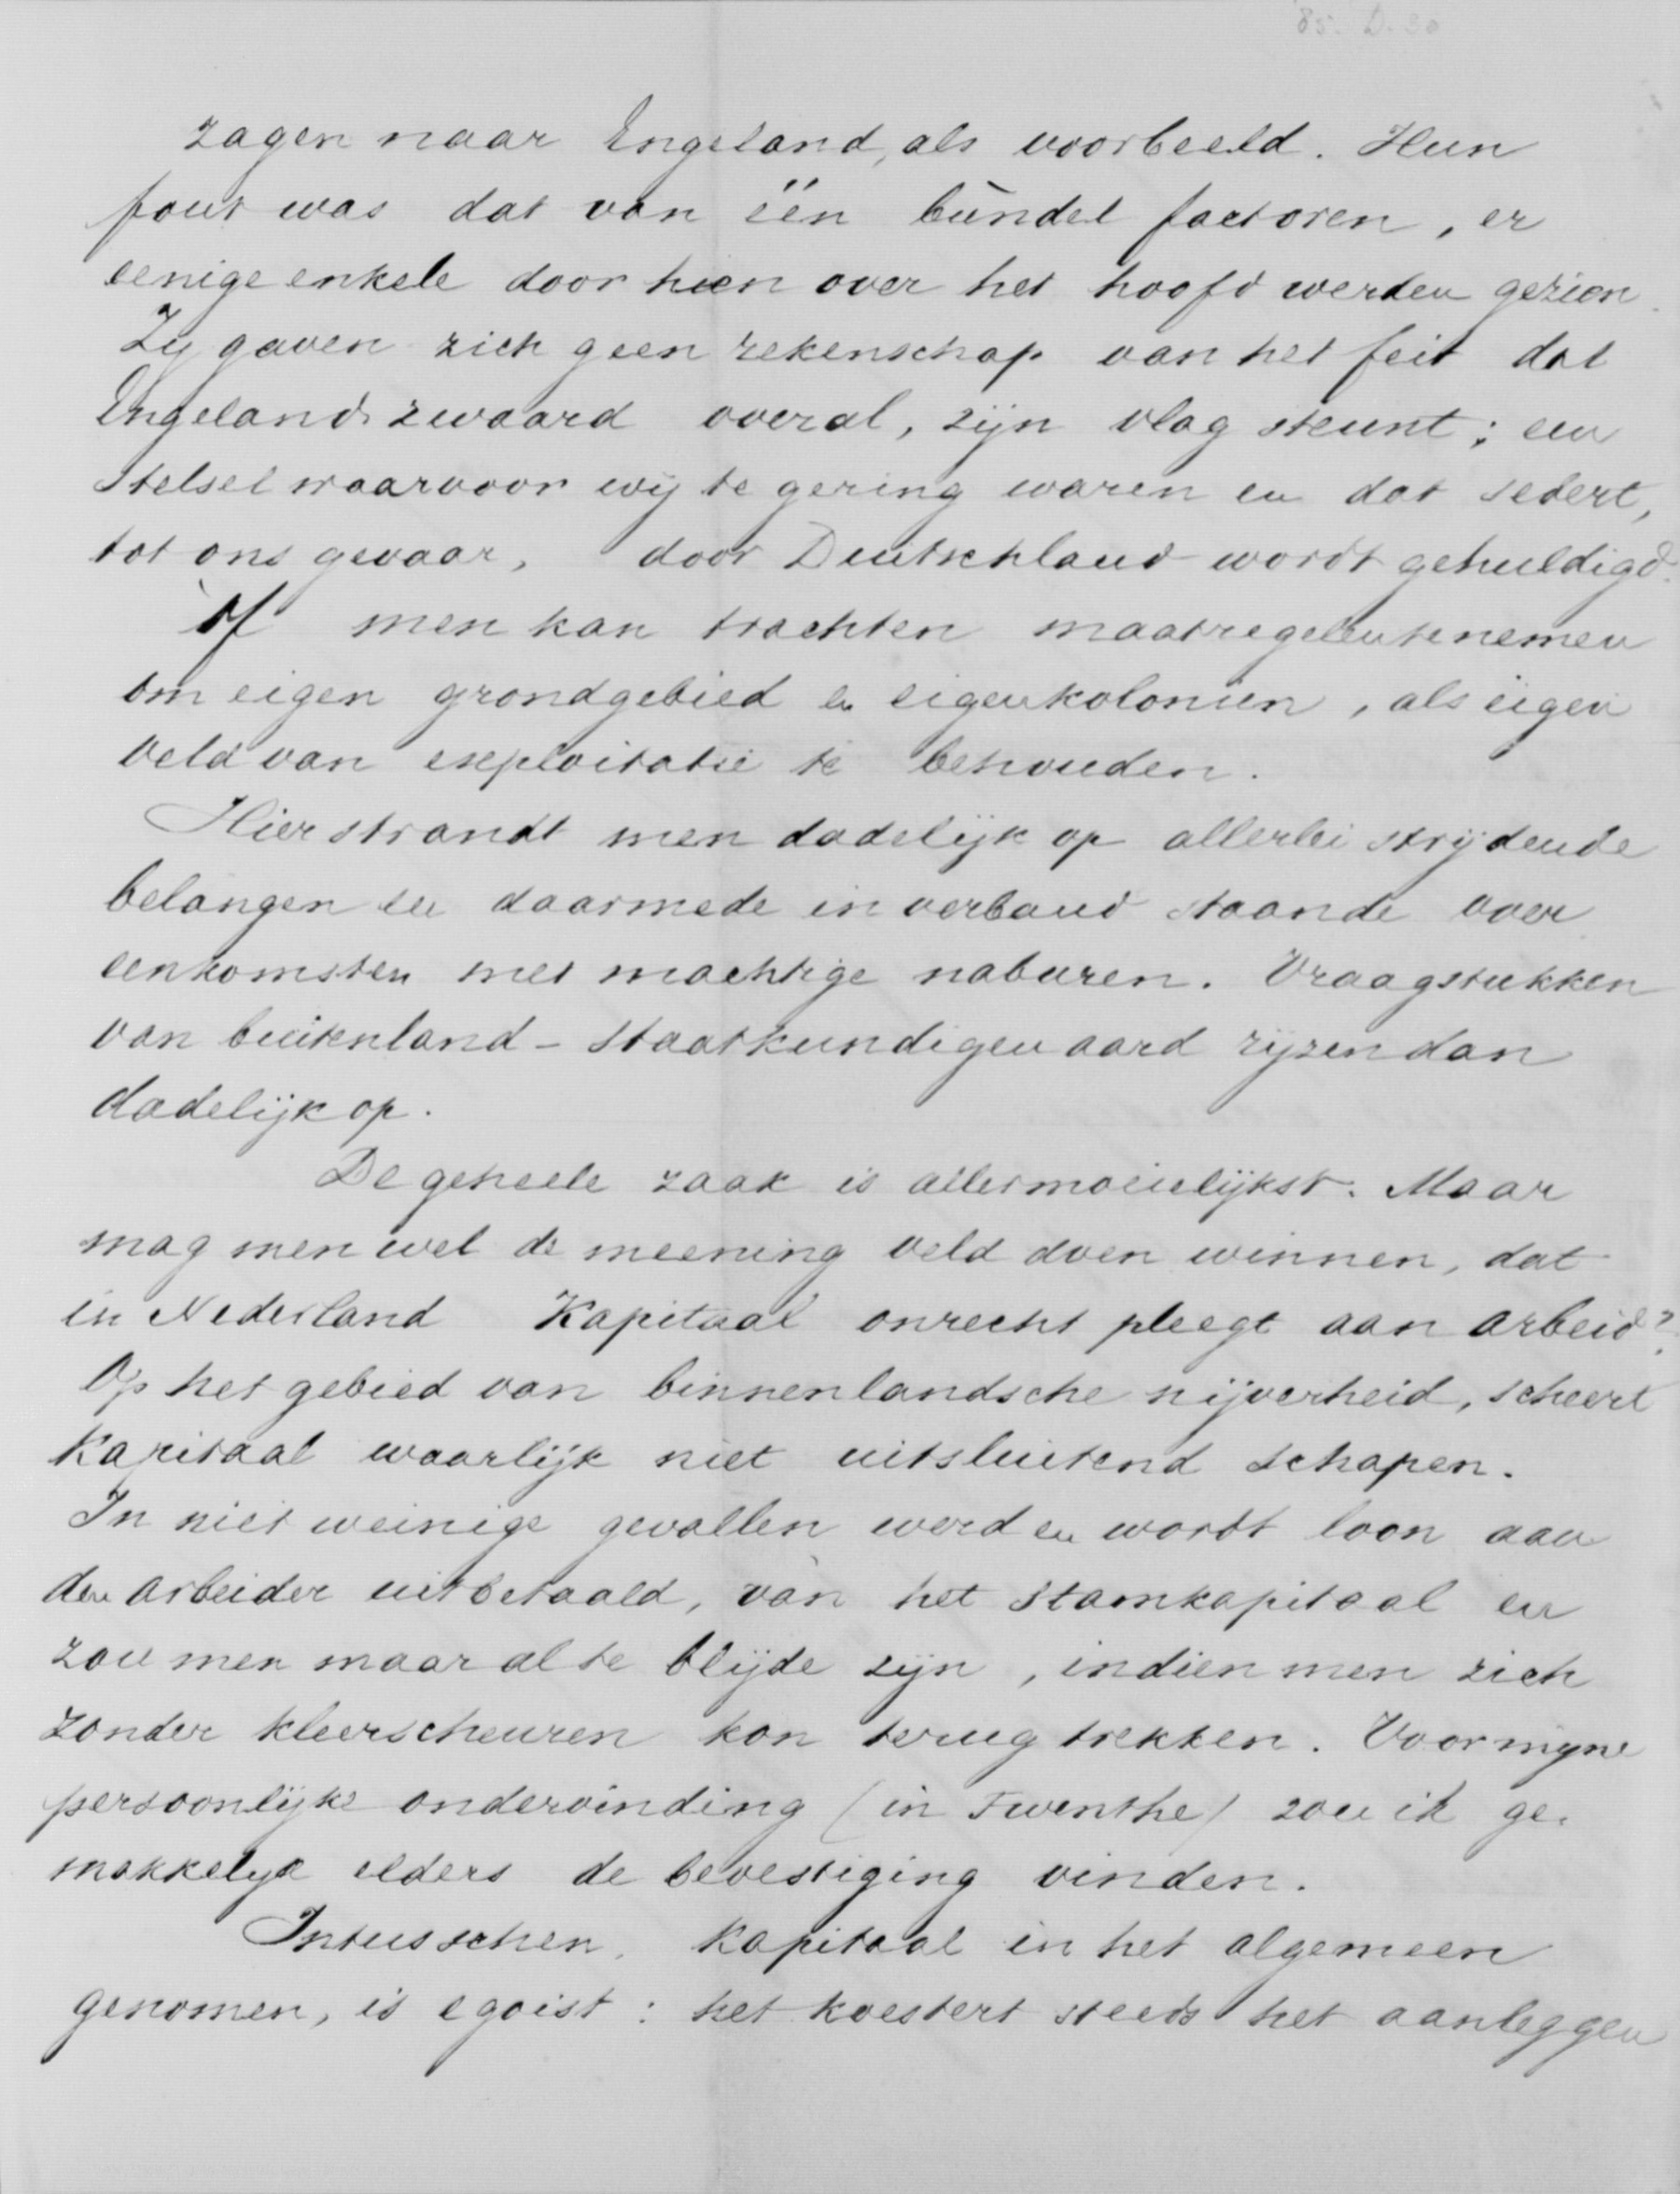 85. D. 30
zagen naar Engeland, als voorbeeld. Hun
fout was dat van één bundel factoren, er
eenige enkele door hen over het hoofd werden gezien.
Zij gaven zich geen rekenschap van het feit dat
Engelands zwaard overal, zijn vlag steunt; een
stelsel waarvoor wij te gering waren en dat sedert,
tot ons gevaar, door Deutschland wordt gehuldigd.
Òf men kan trachten maatregelen te nemen
om eigen grondgebied en eigen koloniën, als eigen
veld van exploitatie te behouden.
Hier strandt men dadelijk op allerlei strijdende
belangen en daarmede in verband staande over
eenkomsten met machtige naburen. Vraagstukken
van buitenland - staatkundigen aard rijzen dan
dadelijk op.
De geheele zaak is allermoeielijkst. Maar
mag men wel de meening veld doen winnen, dat
in Nederland Kapitaal onrecht pleegt aan arbeid?
Op het gebied van binnenlandsche nijverheid, scheert
Kapitaal waarlijk niet uitsluitend schapen.
In niet weinige gevallen werd en wordt loon aan
den arbeider uitbetaald, van het stamkapitaal en
zou men maar al te blijde zijn, indien men zich
zonder kleerscheuren kon terug trekken. Voor mijne
persoonlijke ondervinding (in Twenthe) zou ik ge-
makkelijk elders de bevestiging vinden.
Intusschen, kapitaal in het algemeen
genomen, is egoist: het koestert steeds het aanleggen